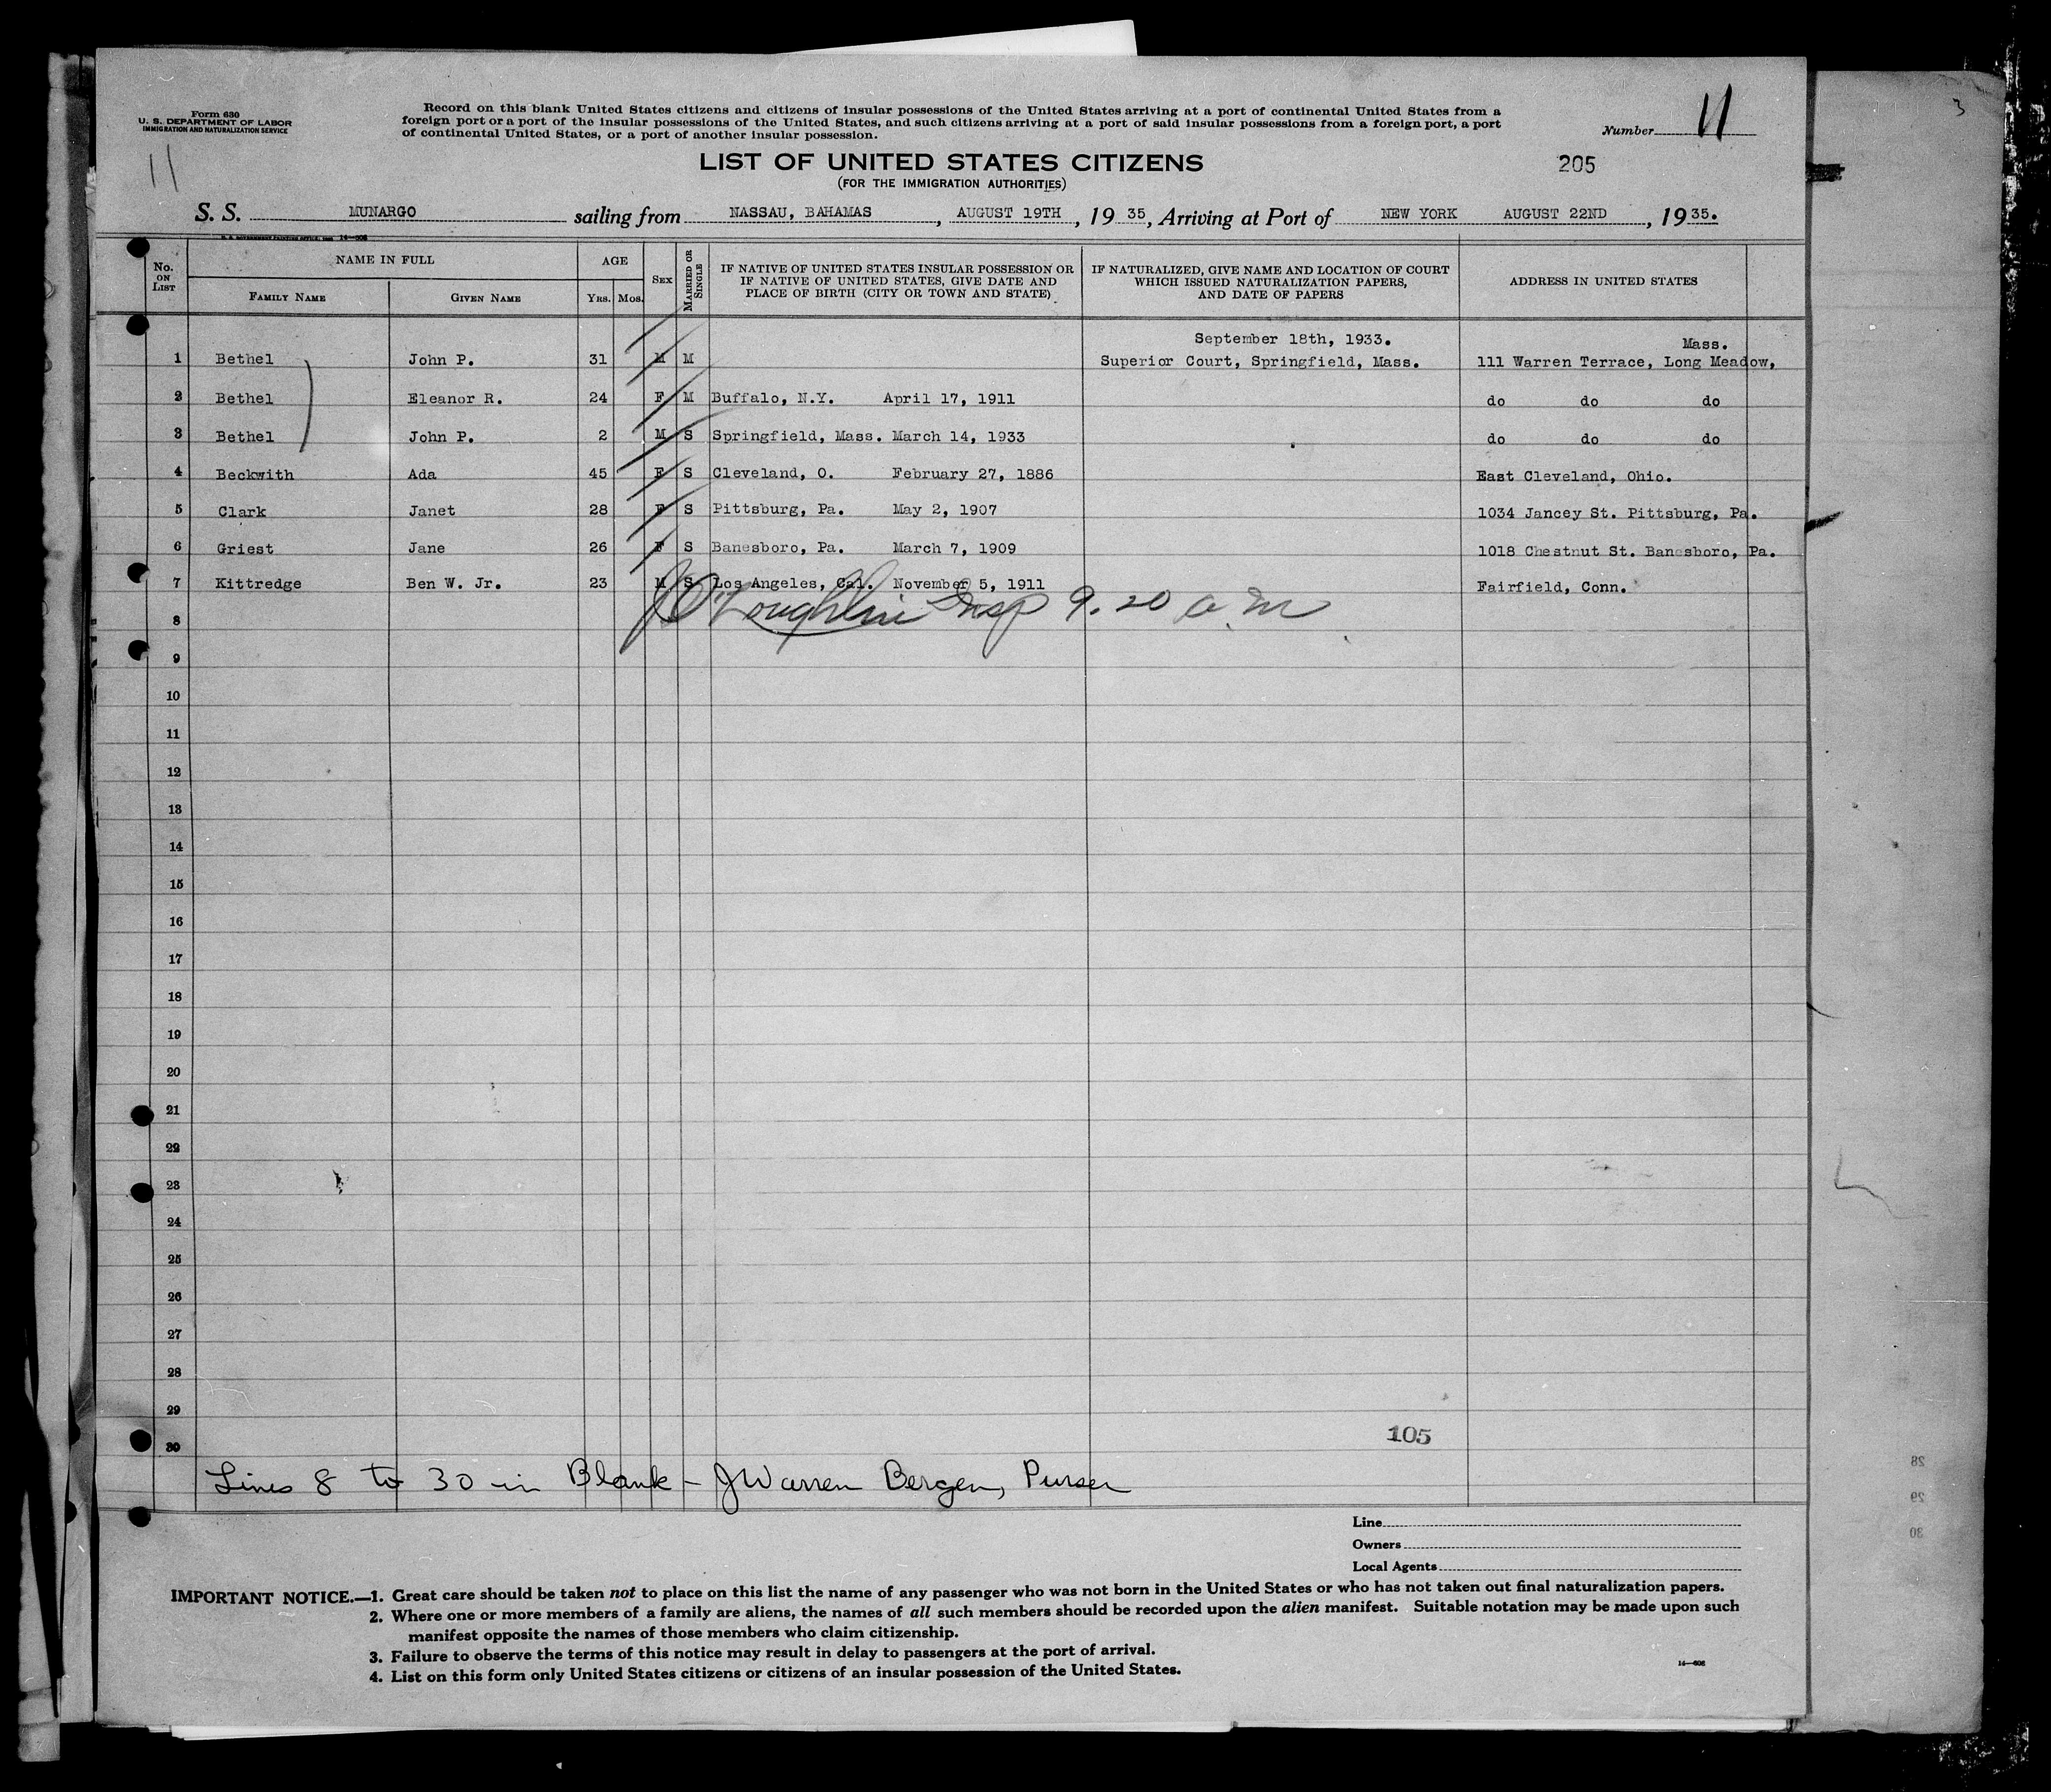 Form 630
U. S. DEPARTMENT OF LABOR
IMMIGRATION AND NATURALIZATION SERVICE
11
Record on this blank United States citizens and citizens of insular possessions of the United States arriving at a port of continental United States from a
foreign port or a port of the insular possessions of the United States, and such citizens arriving at a port of said insular possessions from a foreign port, a port
of continental United States, or a port of another insular possession.
Number 11
3
LIST OF UNITED STATES CITIZENS
(FOR THE IMMIGRATION AUTHORITIES)
205
S. S. MUNARGO sailing from NASSAU, BAHAMAS, AUGUST 19TH, 1935, Arriving at Port of NEW YORK AUGUST 22ND, 1935.
No. ON LIST
NAME IN FULL
FAMILY NAME
GIVEN NAME
AGE
YRS. MOS.
SEX
MARRIED OR SINGLE
IF NATIVE OF UNITED STATES INSULAR POSSESSION OR
IF NATIVE OF UNITED STATES, GIVE DATE AND
PLACE OF BIRTH (CITY OR TOWN AND STATE)
IF NATURALIZED, GIVE NAME AND LOCATION OF COURT
WHICH ISSUED NATURALIZATION PAPERS,
AND DATE OF PAPERS
ADDRESS IN UNITED STATES
September 18th, 1933. Mass.
1 Bethel John P. 31 M M Superior Court, Springfield, Mass. 111 Warren Terrace, Long Meadow,
2 Bethel Eleanor R. 24 F M Buffalo, N.Y. April 17, 1911 do do do
3 Bethel John P. 2 M S Springfield, Mass. March 14, 1933 do do do
4 Beckwith Ada 45 F S Cleveland, O. February 27, 1886 East Cleveland, Ohio.
5 Clark Janet 28 F S Pittsburg, Pa. May 2, 1907 1034 Jancey St. Pittsburg, Pa.
6 Griest Jane 26 F S Banesboro, Pa. March 7, 1909 1018 Chestnut St. Banesboro, Pa.
7 Kittredge Ben W. Jr. 23 M S Los Angeles, Cal. November 5, 1911 Fairfield, Conn.
8 J O'Loughlin Insp 9.20 a.m
9
10
11
12
13
14
15
16
17
18
19
20
21
22
23
24
25
26
27
28
29
105
30
Lines 8 to 30 in Blank - J Warren Bergen, Purser
Line
Owners
Local Agents
28
29
30
IMPORTANT NOTICE.—1. Great care should be taken not to place on this list the name of any passenger who was not born in the United States or who has not taken out final naturalization papers.
2. Where one or more members of a family are aliens, the names of all such members should be recorded upon the alien manifest. Suitable notation may be made upon such
manifest opposite the names of those members who claim citizenship.
3. Failure to observe the terms of this notice may result in delay to passengers at the port of arrival.
4. List on this form only United States citizens or citizens of an insular possession of the United States.